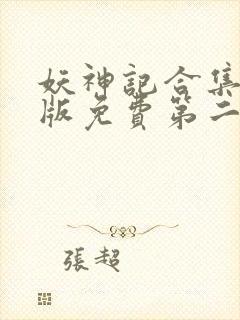 妖神記合集
版免費第二
張超